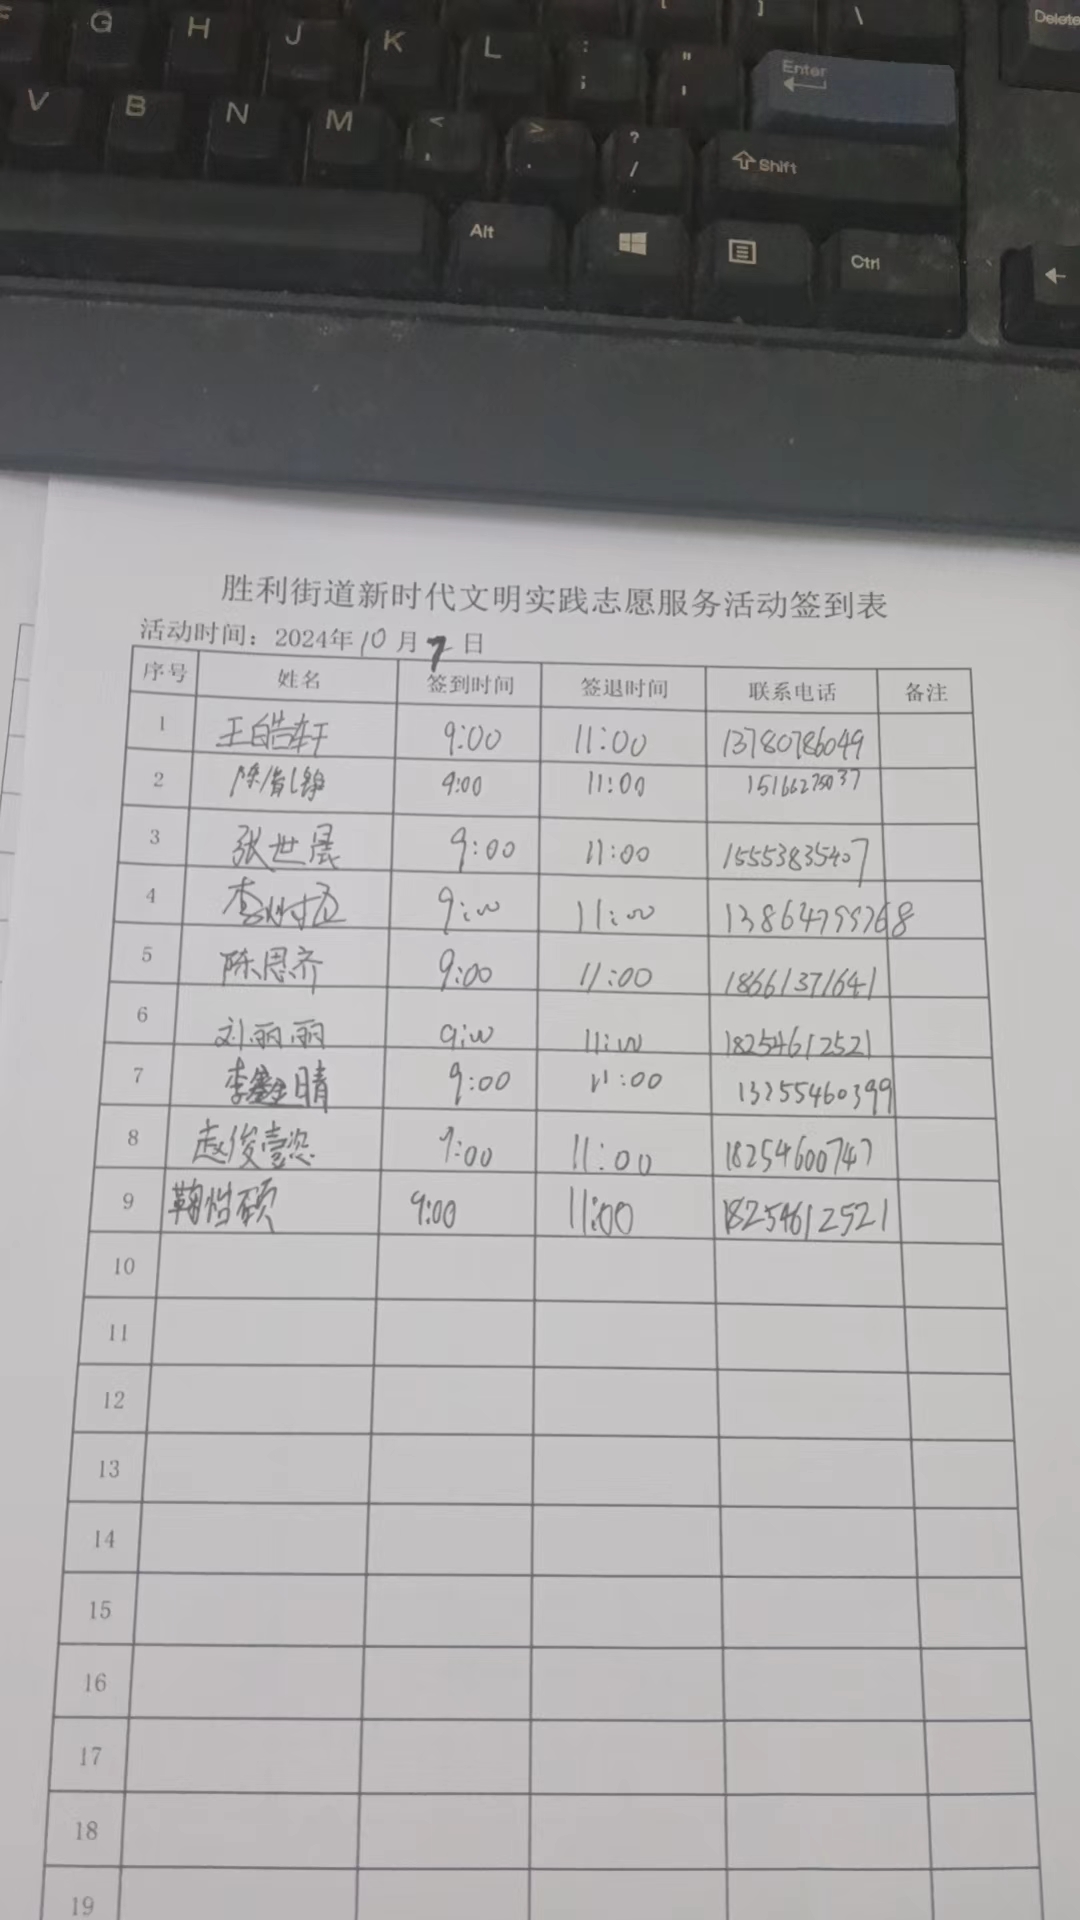 G H J K L : ; " ' Enter Delete
V B N M < , > . ? / Shift
Alt Ctrl
胜利街道新时代文明实践志愿服务活动签到表
活动时间：2024年10月7日
序号 姓名 签到时间 签退时间 联系电话 备注
1 王皓轩 9:00 11:00 13780786049
2 9:00 11:00 15166275037
3 张世晨 9:00 11:00 15553835407
4 9:00 11:00
5 陈思齐 9:00 11:00 18661371641
6 刘丽丽 9:00 11:00 18254612521
7 9:00 11:00 13255460399
8 赵俊壹恣 9:00 11:00 18254600747
9 9:00 11:00 18254612521
10
11
12
13
14
15
16
17
18
19